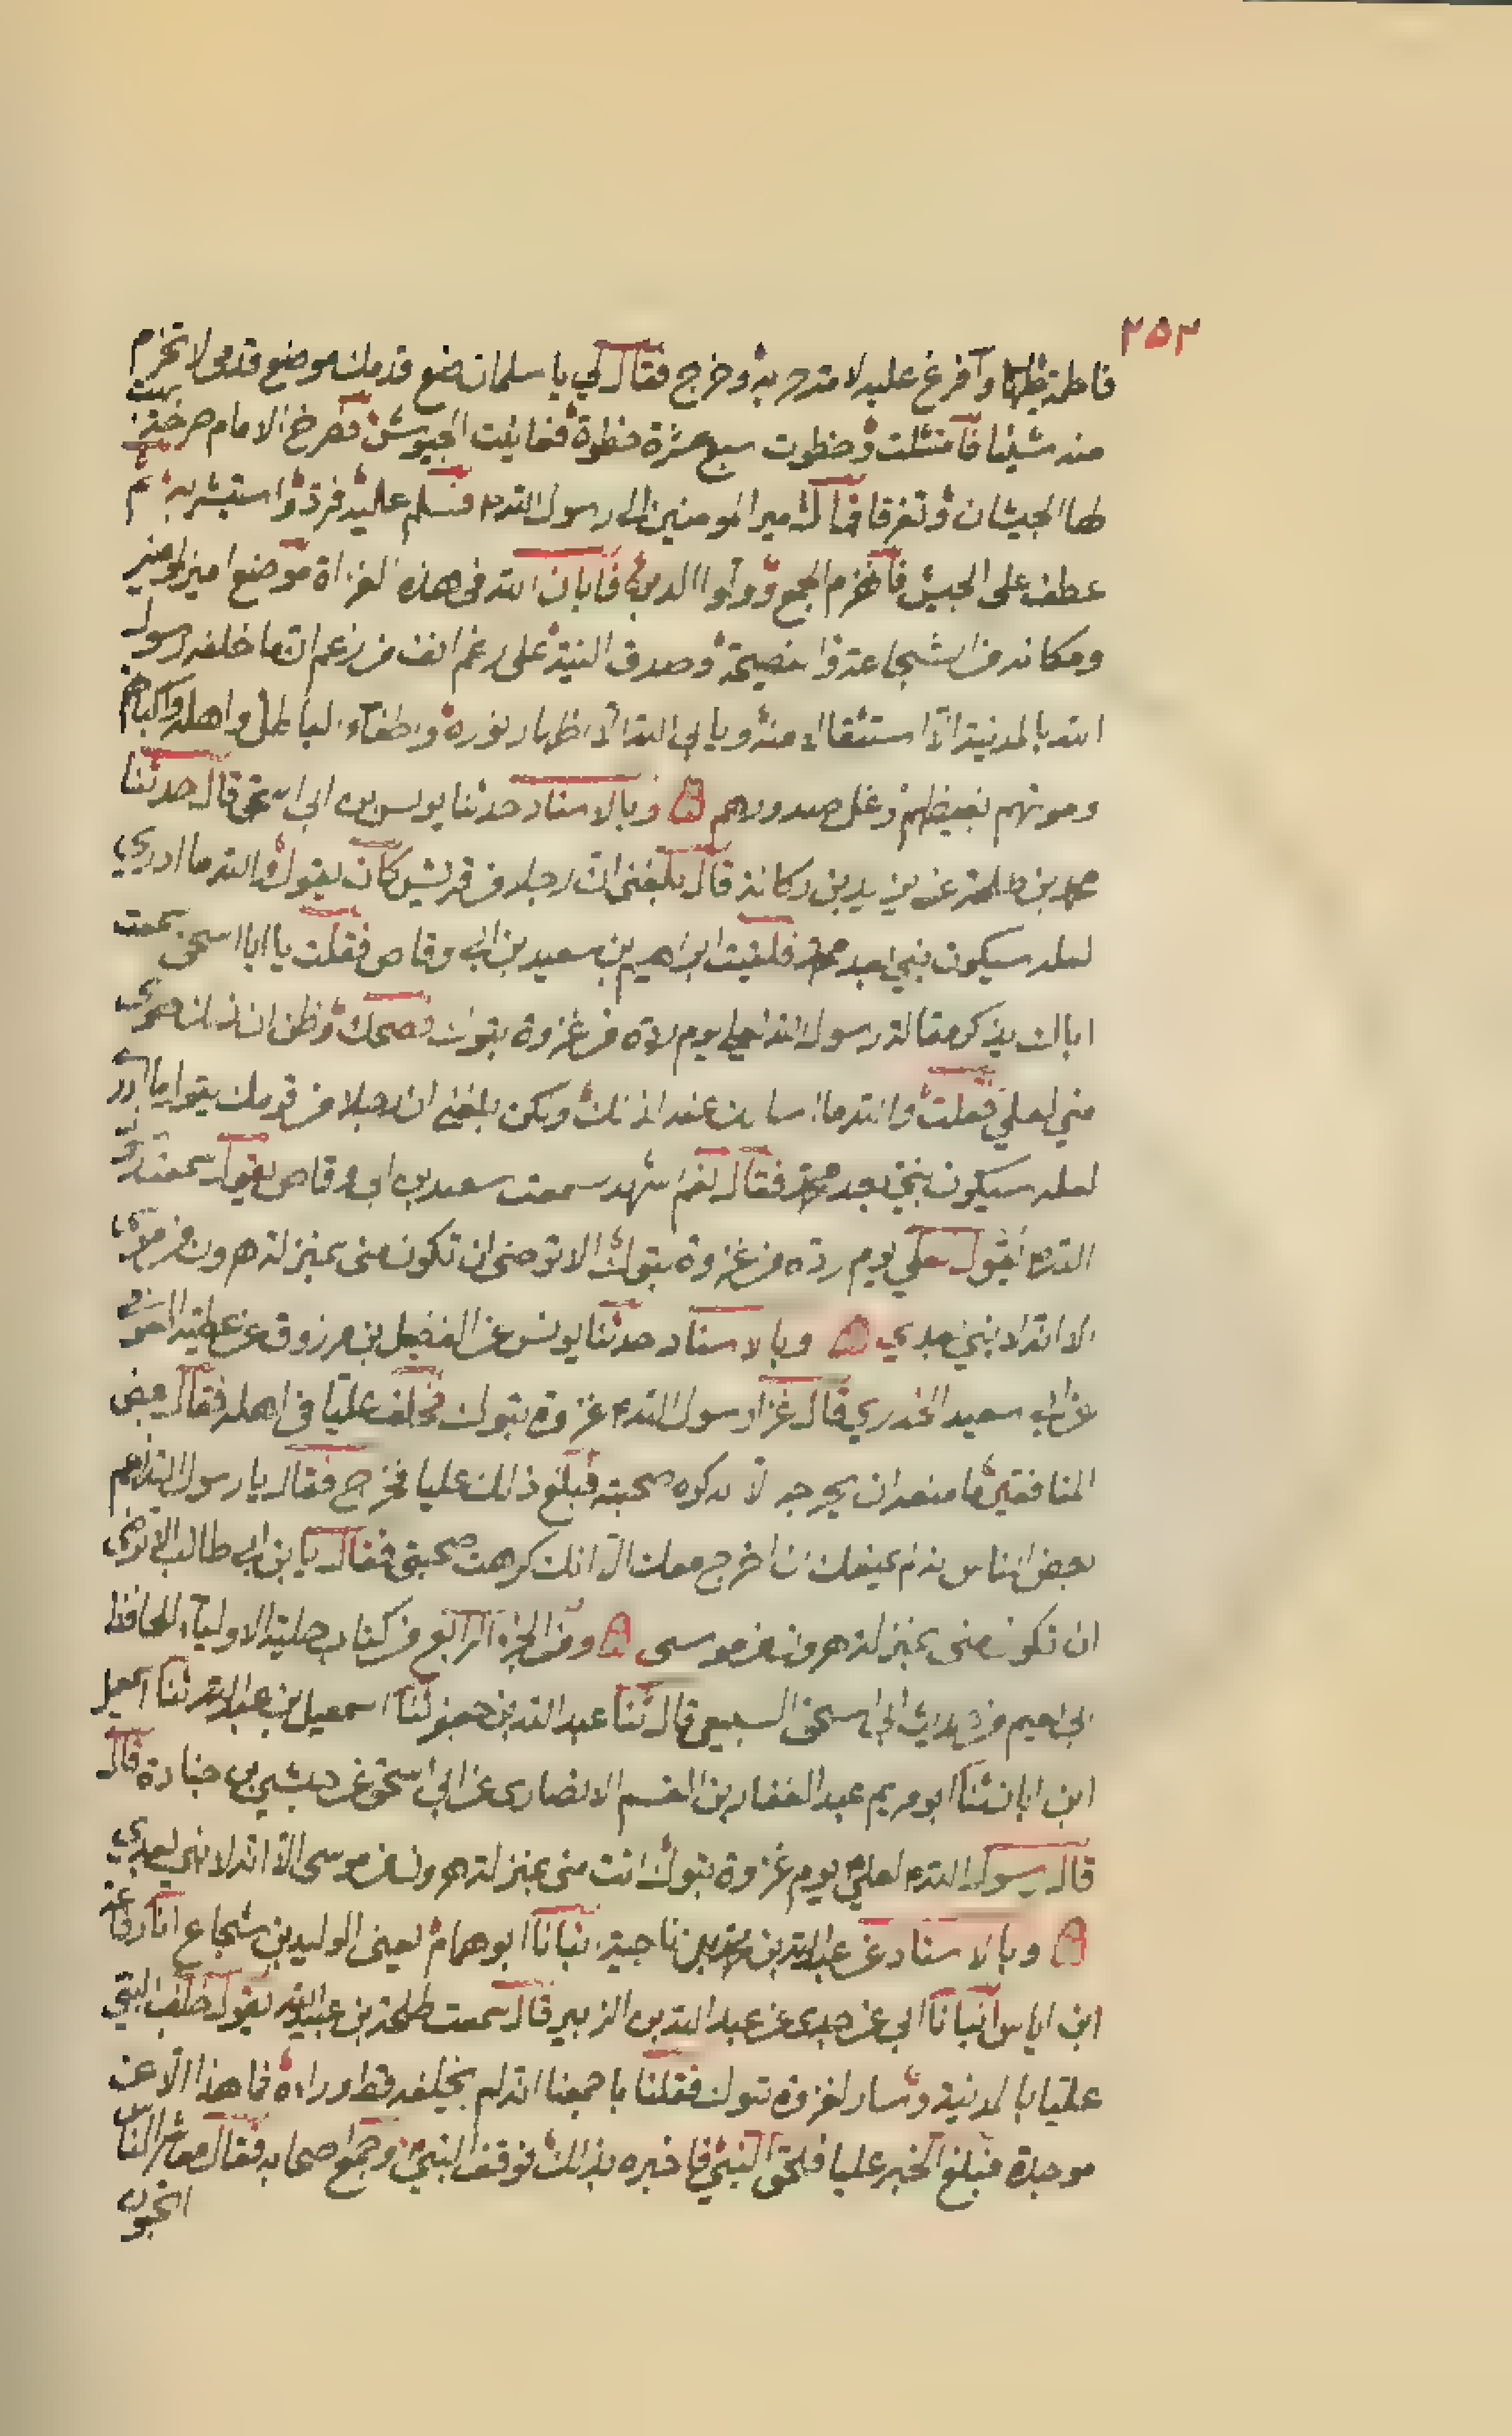 ٢٥٢
فاطمة وافرغ عليه لامة حربه وخرج فقال لي يا سلمان ضع قدمك موضع قدمي لا تخرم
منه شيئا فامتثلت وخطوت سبع عشرة خطوة فعاينت الجيوش فصرخ الامام صرخة
لها الجيشان وتفرقا امير المومنين الى رسول الله فسلم عليه فرد واستبشر به ثم
عطف على الجيش فانهزم الجمع وولوا الدبر فابان الله في هذه الغزاة موضع امير المومنين
ومكانه من الشجاعة والنصيحة وصدق النية على رغم انف من زعم انه ما خلفه رسول
الله بالمدينة الا استثقالا منه ويابى الله الا اظهار نوره واطفاء الباطل واهله
وموتهم بغيظهم وغل صدورهم وبالاسناد حدثنا يونس بن ابي اسحق قال حدثنا
محمد بن طلحة عن يزيد بن ركانة قال بلغني ان رجلا من قريش كان يقول والله ما ادري
لعله سيكون نبي بعد محمد فلقيت ابراهيم بن سعيد بن ابي وقاص فقلت يا ابا اسحق سمعت
اباك يذكر مقالة رسول الله لعلي يوم رده من غزوة تبوك فضحك وظن ان ذلك
مني لعلي فقلت والله ما اسالك عنه لذلك ولكن بلغني ان رجلا من قومك يقول ما ادري
لعله سيكون نبي بعد محمد فقال نعم اشهد سمعت سعد بن ابي وقاص يقول سمعت رسول
الله يقول لعلي يوم رده من غزوة تبوك الا ترضى ان تكون مني بمنزلة هرون من موسى
الا انه لا نبي بعدي وبالاسناد حدثنا يونس عن الفضيل بن مرزوق عن عطية العوفي
عن ابي سعيد الخدري قال غزا رسول الله غزوة تبوك فخلف عليا في اهله فقال بعض
المنافقين ما منعه ان يخرجه الا انه كره صحبته فبلغ ذلك عليا فخرج فقال يا رسول الله زعم
بعض الناس انه لم يمنعك ان اخرج معك الا انك كرهت صحبتي فقال يا بن ابي طالب الا ترضى
ان تكون مني بمنزلة هرون من موسى ومن الجزء الرابع من كتاب حلية الاولياء للحافظ
ابي نعيم من حديث ابي اسحق السبيعي قال ثنا عبد الله بن جعفر ثنا اسمعيل بن عبد الله ثنا اسمعيل
ابن ابان ثنا ابو مريم عبد الغفار بن القسم الانصاري عن ابي اسحق عن حبشي بن جنادة قال
قال رسول الله لعلي يوم غزوة تبوك انت مني بمنزلة هرون من موسى الا انه لا نبي بعدي
وبالاسناد عن عبد الله بن محمد بن ناجية انبانا ابو همام يعني الوليد بن شجاع انا رفاعة
ابن اياس انبانا ابي عن جدي عن عبد الله بن الزبير قال سمعت طلحة بن عبيد الله يقول خلف النبي
عليا بالمدينة وسار لغزوة تبوك فقلنا باجمعنا انه لم يخلفه قط وراءه فما هذا الا عن
موجدة فبلغ الخبر عليا فلحق النبي فاخبره بذلك فوقف النبي وجمع اصحابه فقال معاشر الناس
اتحبون